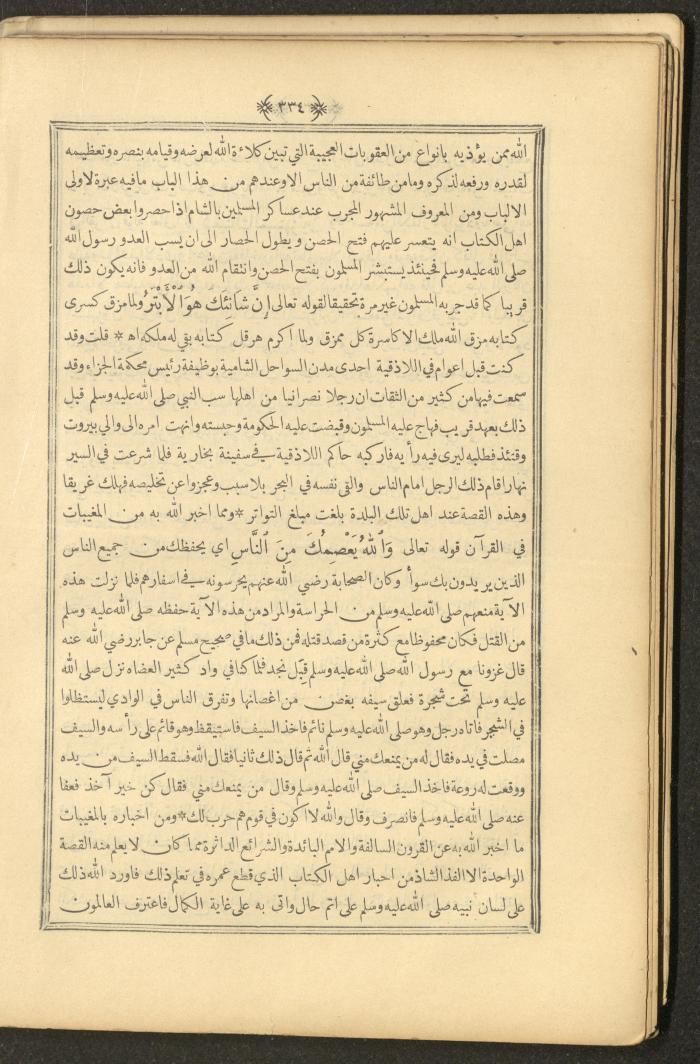 ٣٣٤
الله ممن يؤذيه بانواع من العقوبات العجيبة التي تبين كلاءة الله لعرضه وقيامه بنصره وتعظيمه
لقدره ورفعه لذكره وما من طائفة من الناس الا وعندهم من هذا الباب ما فيه عبرة لاولى
الالباب ومن المعروف المشهور المجرب عند عساكر المسلمين بالشام اذا حصروا بعض حصون
اهل الكتاب انه يتعسر عليهم فتح الحصن ويطول الحصار الى ان يسب العدو رسول الله
صلى الله عليه وسلم فحينئذ يستبشر المسلمون بفتح الحصن وانتقام الله من العدو فانه يكون ذلك
قريبا كما قد جربه المسلمون غير مرة تحقيقا لقوله تعالى إِنَّ شَانِئَكَ هُوَ ٱلْأَبْتَرُ ولما مزق كسرى
كتابه مزق الله ملك الاكاسرة كل ممزق ولما اكرم هرقل كتابه بقي له ملكه اه * قلت وقد
كنت قبل اعوام في اللاذقية احدى مدن السواحل الشامية بوظيفة رئيس محكمة الجزاء وقد
سمعت فيها من كثير من الثقات ان رجلا نصرانيا من اهلها سب النبي صلى الله عليه وسلم قبل
ذلك بعهد قريب فهاج عليه المسلمون وقبضت عليه الحكومة وحبسته وانهت امره الى والي بيروت
وقتئذ فطلبه ليرى فيه رأيه فاركبه حاكم اللاذقية في سفينة بخارية فلما شرعت في السير
نهارا قام ذلك الرجل امام الناس والقى نفسه في البحر بلا سبب وعجزوا عن تخليصه فهلك غريقا
وهذه القصة عند اهل تلك البلدة بلغت مبلغ التواتر * ومما اخبر الله به من المغيبات
في القرآن قوله تعالى وَٱللهُ يَعْصِمُكَ مِنَ ٱلنَّاسِ اي يحفظك من جميع الناس
الذين يريدون بك سوأ وكان الصحابة رضي الله عنهم يحرسونه في اسفارهم فلما نزلت هذه
الآية منعهم صلى الله عليه وسلم من الحراسة والمراد من هذه الآية حفظه صلى الله عليه وسلم
من القتل فكان محفوظا مع كثرة من قصد قتله فمن ذلك ما في صحيح مسلم عن جابر رضي الله عنه
قال غزونا مع رسول الله صلى الله عليه وسلم قِبَل نجد فلما كنا في واد كثير العضاه نزل صلى الله
عليه وسلم تحت شجرة فعلق سيفه بغصن من اغصانها وتفرق الناس في الوادي ليستظلوا
في الشجر فاتاه رجل وهو صلى الله عليه وسلم نائم فاخذ السيف فاستيقظ وهو قائم على رأسه والسيف
مصلت في يده فقال له من يمنعك مني قال الله ثم قال ذلك ثانيا فقال الله فسقط السيف من يده
ووقعت له روعة فاخذ السيف صلى الله عليه وسلم وقال من يمنعك مني فقال كن خير آخذ فعفا
عنه صلى الله عليه وسلم فانصرف وقال والله لا اكون في قوم هم حرب لك * ومن اخباره بالمغيبات
ما اخبر الله به عن القرون السالفة والامم البائدة والشرائع الداثرة مما كان لا يعلم منه القصة
الواحدة الا الفذ الشاذ من احبار اهل الكتاب الذي قطع عمره في تعلم ذلك فاورد الله ذلك
على لسان نبيه صلى الله عليه وسلم على اتم حال واتى به على غاية الكمال فاعترف العالمون